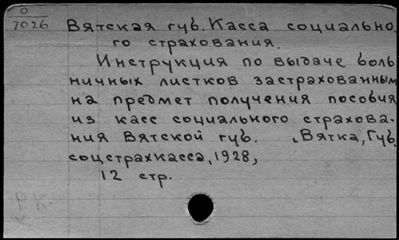 0
7026
Вятская губ. Касса социально
го страхования.
Инструкция по выдаче боль
ничных листков застрахованным
на предмет получения пособия
из касс социального страхова-
ния Вятской губ. Вятка, Губ.
соцстрахкасса, 1928,
12 стр.
В.К.